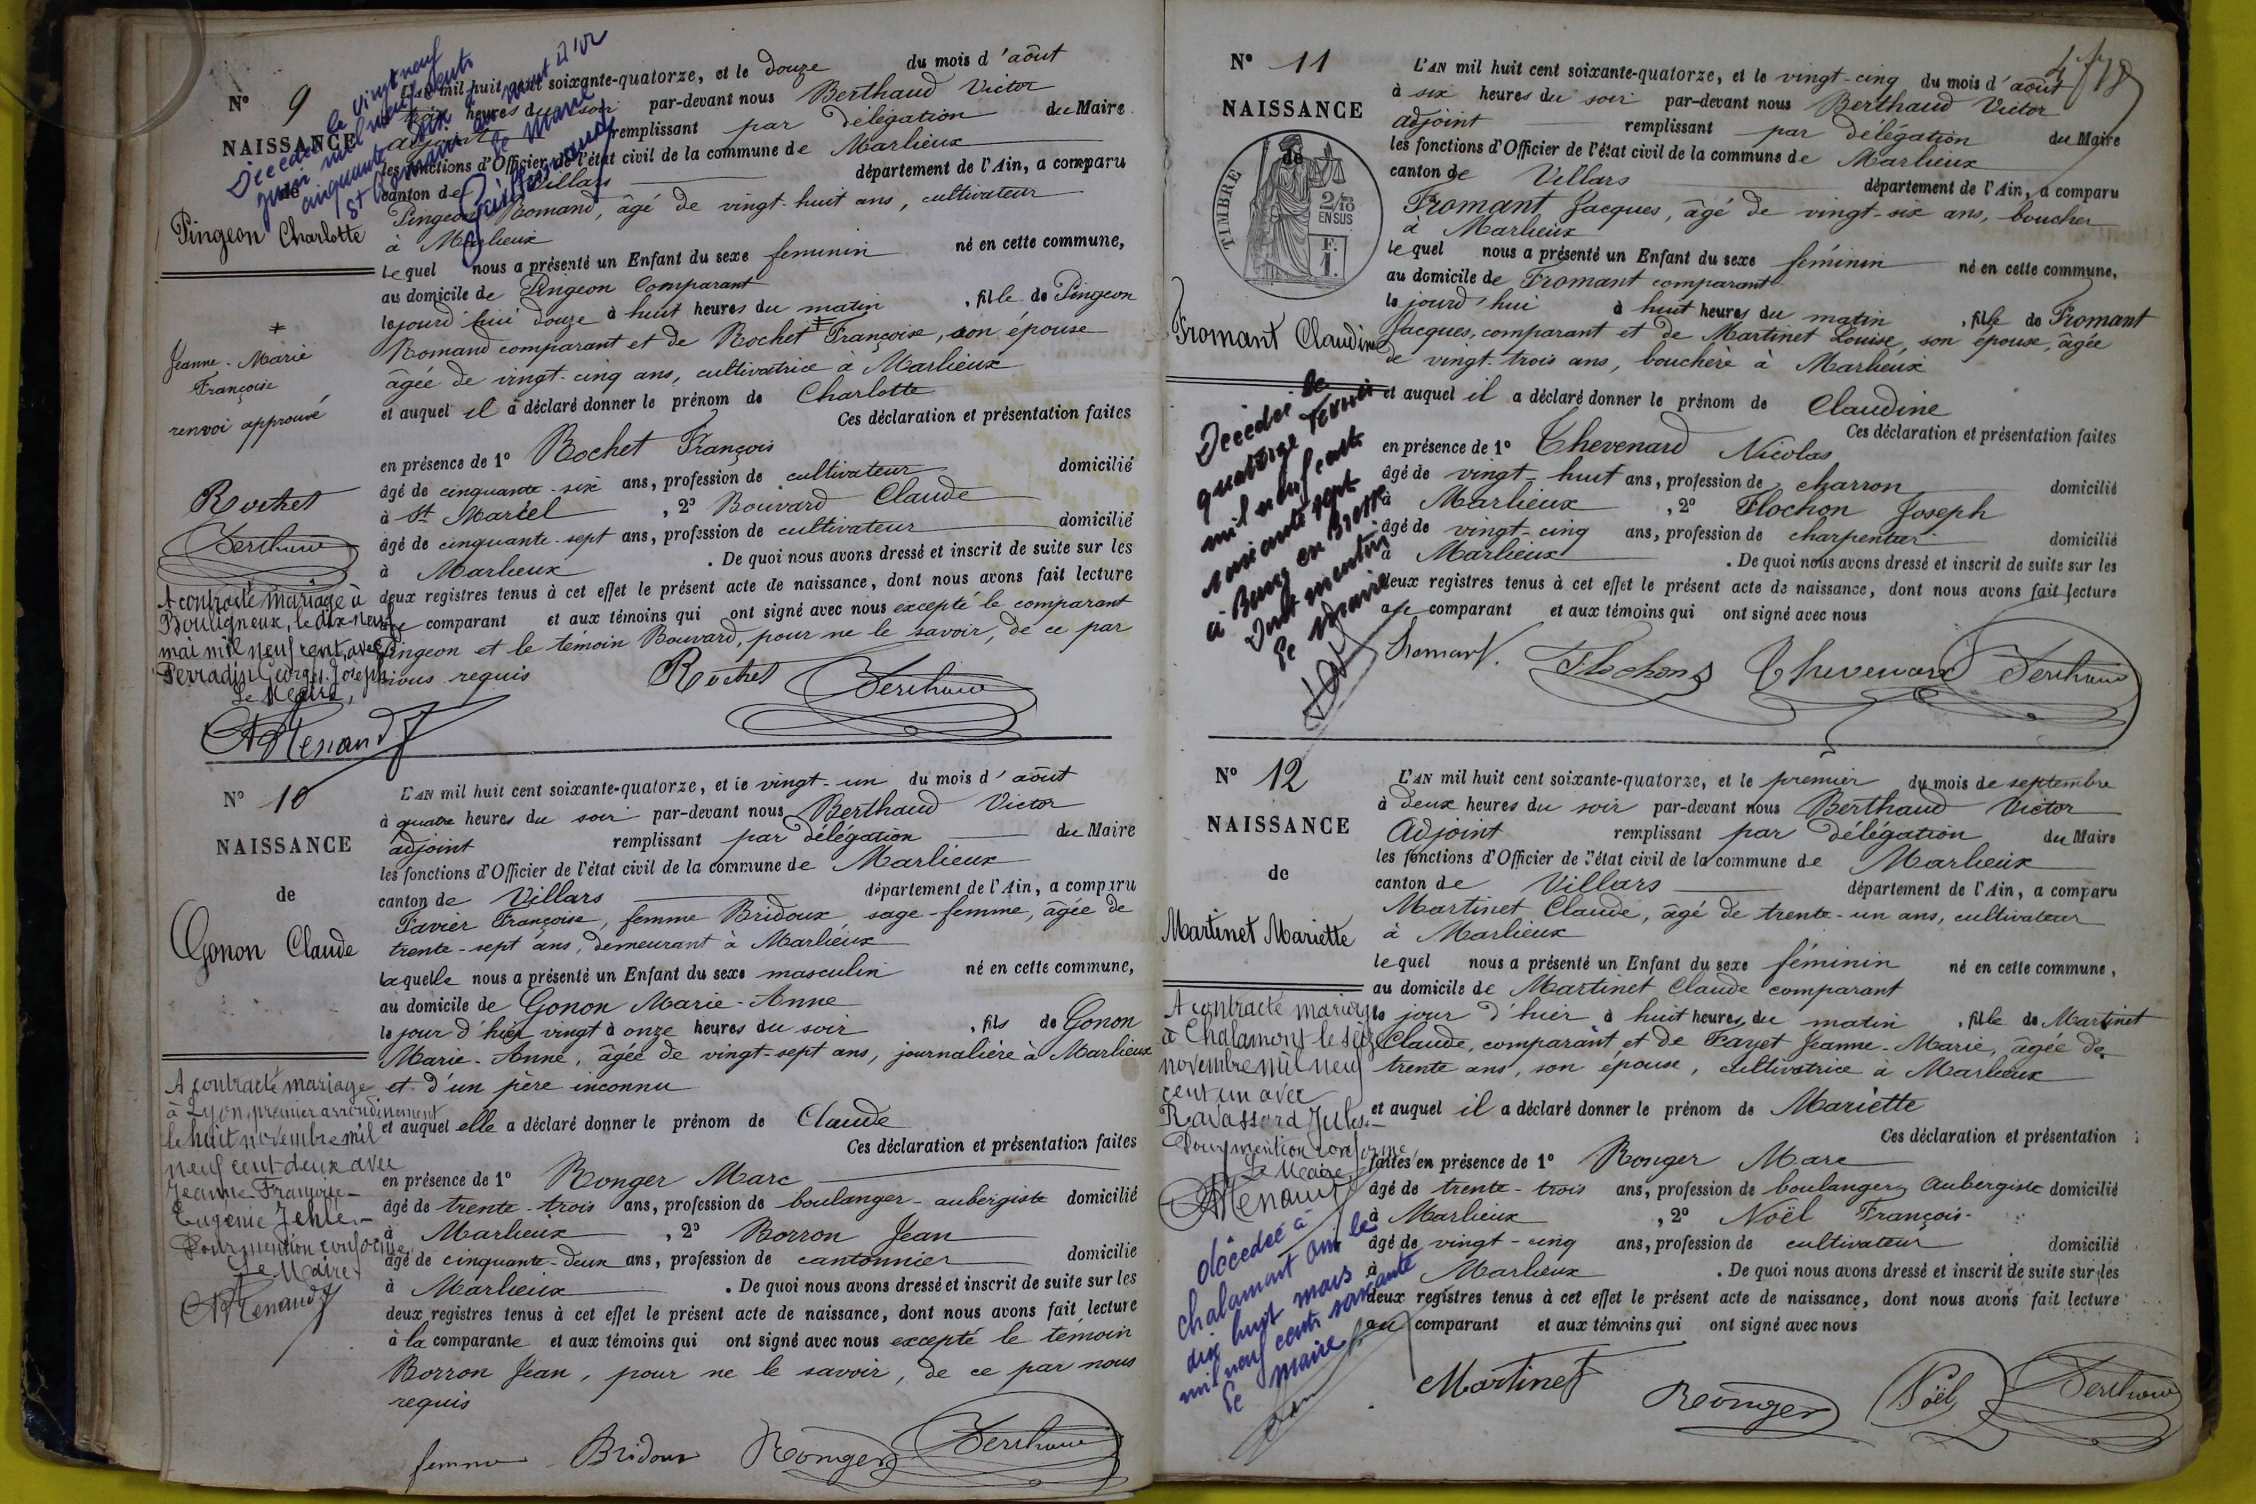 N° 9
NAISSANCE
de
Pingeon Charlotte
Décédée le vingt neuf
juin mil neuf cents
cinquante six à
St Romain au mont d'or
le Maire
L'AN mil huit cent soixante-quatorze, et le douze du mois d'août
à trois heures du soir par-devant nous Berthaud Victor
adjoint remplissant par délégation du Maire
les fonctions d'Officier de l'état civil de la commune de Marlieux
canton de Villars département de l'Ain, a comparu
Pingeon Romand, âgé de vingt-huit ans, cultivateur
à Marlieux
lequel nous a présenté un Enfant du sexe feminin né en cette commune,
au domicile de Pingeon Comparant
le jourd'hui douze à huit heures du matin, fille de Pingeon
Romand comparant et de Rochet ‡ Françoise, son épouse
âgée de vingt-cinq ans, cultivatrice à Marlieux
et auquel il a déclaré donner le prénom de Charlotte
Ces déclaration et présentation faites
en présence de 1° Rochet François
âgé de cinquante-six ans, profession de cultivateur domicilié
à St Marcel, 2° Bouvard Claude
âgé de cinquante-sept ans, profession de cultivateur domicilié
à Marlieux. De quoi nous avons dressé et inscrit de suite sur les
deux registres tenus à cet effet le présent acte de naissance, dont nous avons fait lecture
au comparant et aux témoins qui ont signé avec nous excepté le comparant
Pingeon et le témoin Bouvard, pour ne le savoir, de ce par
nous requis
Rochet Berthaud
‡
Jeanne-Marie
Françoise
renvoi approuvé
Rochet
Berthaud
A contracté mariage à
Bouligneux, le dix-neuf
mai mil neuf cent, avec
Perradin Georges Joseph
Le Maire,
N° 10
NAISSANCE
de
Gonon Claude
L'AN mil huit cent soixante-quatorze, et le vingt-un du mois d'août
à quatre heures du soir par-devant nous Berthaud Victor
adjoint remplissant par délégation du Maire
les fonctions d'Officier de l'état civil de la commune de Marlieux
canton de Villars département de l'Ain, a comparu
Favier Françoise, femme Bridoux sage-femme, âgée de
trente-sept ans, demeurant à Marlieux
laquelle nous a présenté un Enfant du sexe masculin né en cette commune,
au domicile de Gonon Marie-Anne
le jour d'hier vingt à onze heures du soir, fils de Gonon
Marie-Anne, âgée de vingt-sept ans, journalière à Marlieux
et d'un père inconnu
et auquel elle a déclaré donner le prénom de Claude
Ces déclaration et présentation faites
en présence de 1° Ronger Marc
âgé de trente-trois ans, profession de boulanger-aubergiste domicilié
à Marlieux, 2° Borron Jean
âgé de cinquante-deux ans, profession de cantonnier domicilié
à Marlieux. De quoi nous avons dressé et inscrit de suite sur les
deux registres tenus à cet effet le présent acte de naissance, dont nous avons fait lecture
à la comparante et aux témoins qui ont signé avec nous excepté le témoin
Borron Jean, pour ne le savoir, de ce par nous
requis
femme Bridoux Ronger Berthaud
A contracté mariage
à Lyon, premier arrondissement
le huit novembre mil
neuf cent deux avec
Jeanne Françoise
Eugénie Jehle
Pour mention conforme
Le Maire
N° 11
NAISSANCE
de
TIMBRE
2/10
EN SUS
F.
1.
Fromant Claudine
L'AN mil huit cent soixante-quatorze, et le vingt-cinq du mois d'août
à six heures du soir par-devant nous Berthaud Victor
adjoint remplissant par délégation du Maire
les fonctions d'Officier de l'état civil de la commune de Marlieux
canton de Villars département de l'Ain, a comparu
Fromant Jacques, âgé de vingt-six ans, boucher
à Marlieux
lequel nous a présenté un Enfant du sexe féminin né en cette commune,
au domicile de Fromant comparant
le jourd'hui à huit heures du matin, fille de Fromant
Jacques, comparant et de Martinet Louise, son épouse, âgée
de vingt-trois ans, bouchère à Marlieux
et auquel il a déclaré donner le prénom de Claudine
Ces déclaration et présentation faites
en présence de 1° Thevenard Nicolas
âgé de vingt-huit ans, profession de charron domicilié
à Marlieux, 2° Flochon Joseph
âgé de vingt-cinq ans, profession de charpentier domicilié
à Marlieux. De quoi nous avons dressé et inscrit de suite sur les
deux registres tenus à cet effet le présent acte de naissance, dont nous avons fait lecture
au comparant et aux témoins qui ont signé avec nous
Fromant. Flochon Thevenard Berthaud
Décédée le
quatorze février
mil neuf cent
soixante sept
à Bourg en Bresse
Dont mention
Le Maire
N° 12
NAISSANCE
de
Martinet Mariette
L'AN mil huit cent soixante-quatorze, et le premier du mois de septembre
à deux heures du soir par-devant nous Berthaud Victor
Adjoint remplissant par délégation du Maire
les fonctions d'Officier de l'état civil de la commune de Marlieux
canton de Villars département de l'Ain, a comparu
Martinet Claude, âgé de trente-un ans, cultivateur
à Marlieux
lequel nous a présenté un Enfant du sexe féminin né en cette commune,
au domicile de Martinet Claude comparant
le jour d'hier à huit heures du matin, fille de Martinet
Claude, comparant et de Fayet Jeanne-Marie, âgée de
trente ans, son épouse, cultivatrice à Marlieux
et auquel il a déclaré donner le prénom de Mariette
Ces déclaration et présentation
faites en présence de 1° Ronger Marc
âgé de trente-trois ans, profession de boulanger, Aubergiste domicilié
à Marlieux, 2° Noël François
âgé de vingt-cinq ans, profession de cultivateur domicilié
à Marlieux. De quoi nous avons dressé et inscrit de suite sur les
deux registres tenus à cet effet le présent acte de naissance, dont nous avons fait lecture
au comparant et aux témoins qui ont signé avec nous
Martinet Ronger Noël Berthaud
A contracté mariage
à Chalamont le seize
novembre mil neuf
cent un avec
Ravassard Jules
Pour mention conforme
Le Maire
décédée à
chalamont ain le
dix huit mars
mil neuf cents soixante
Le maire